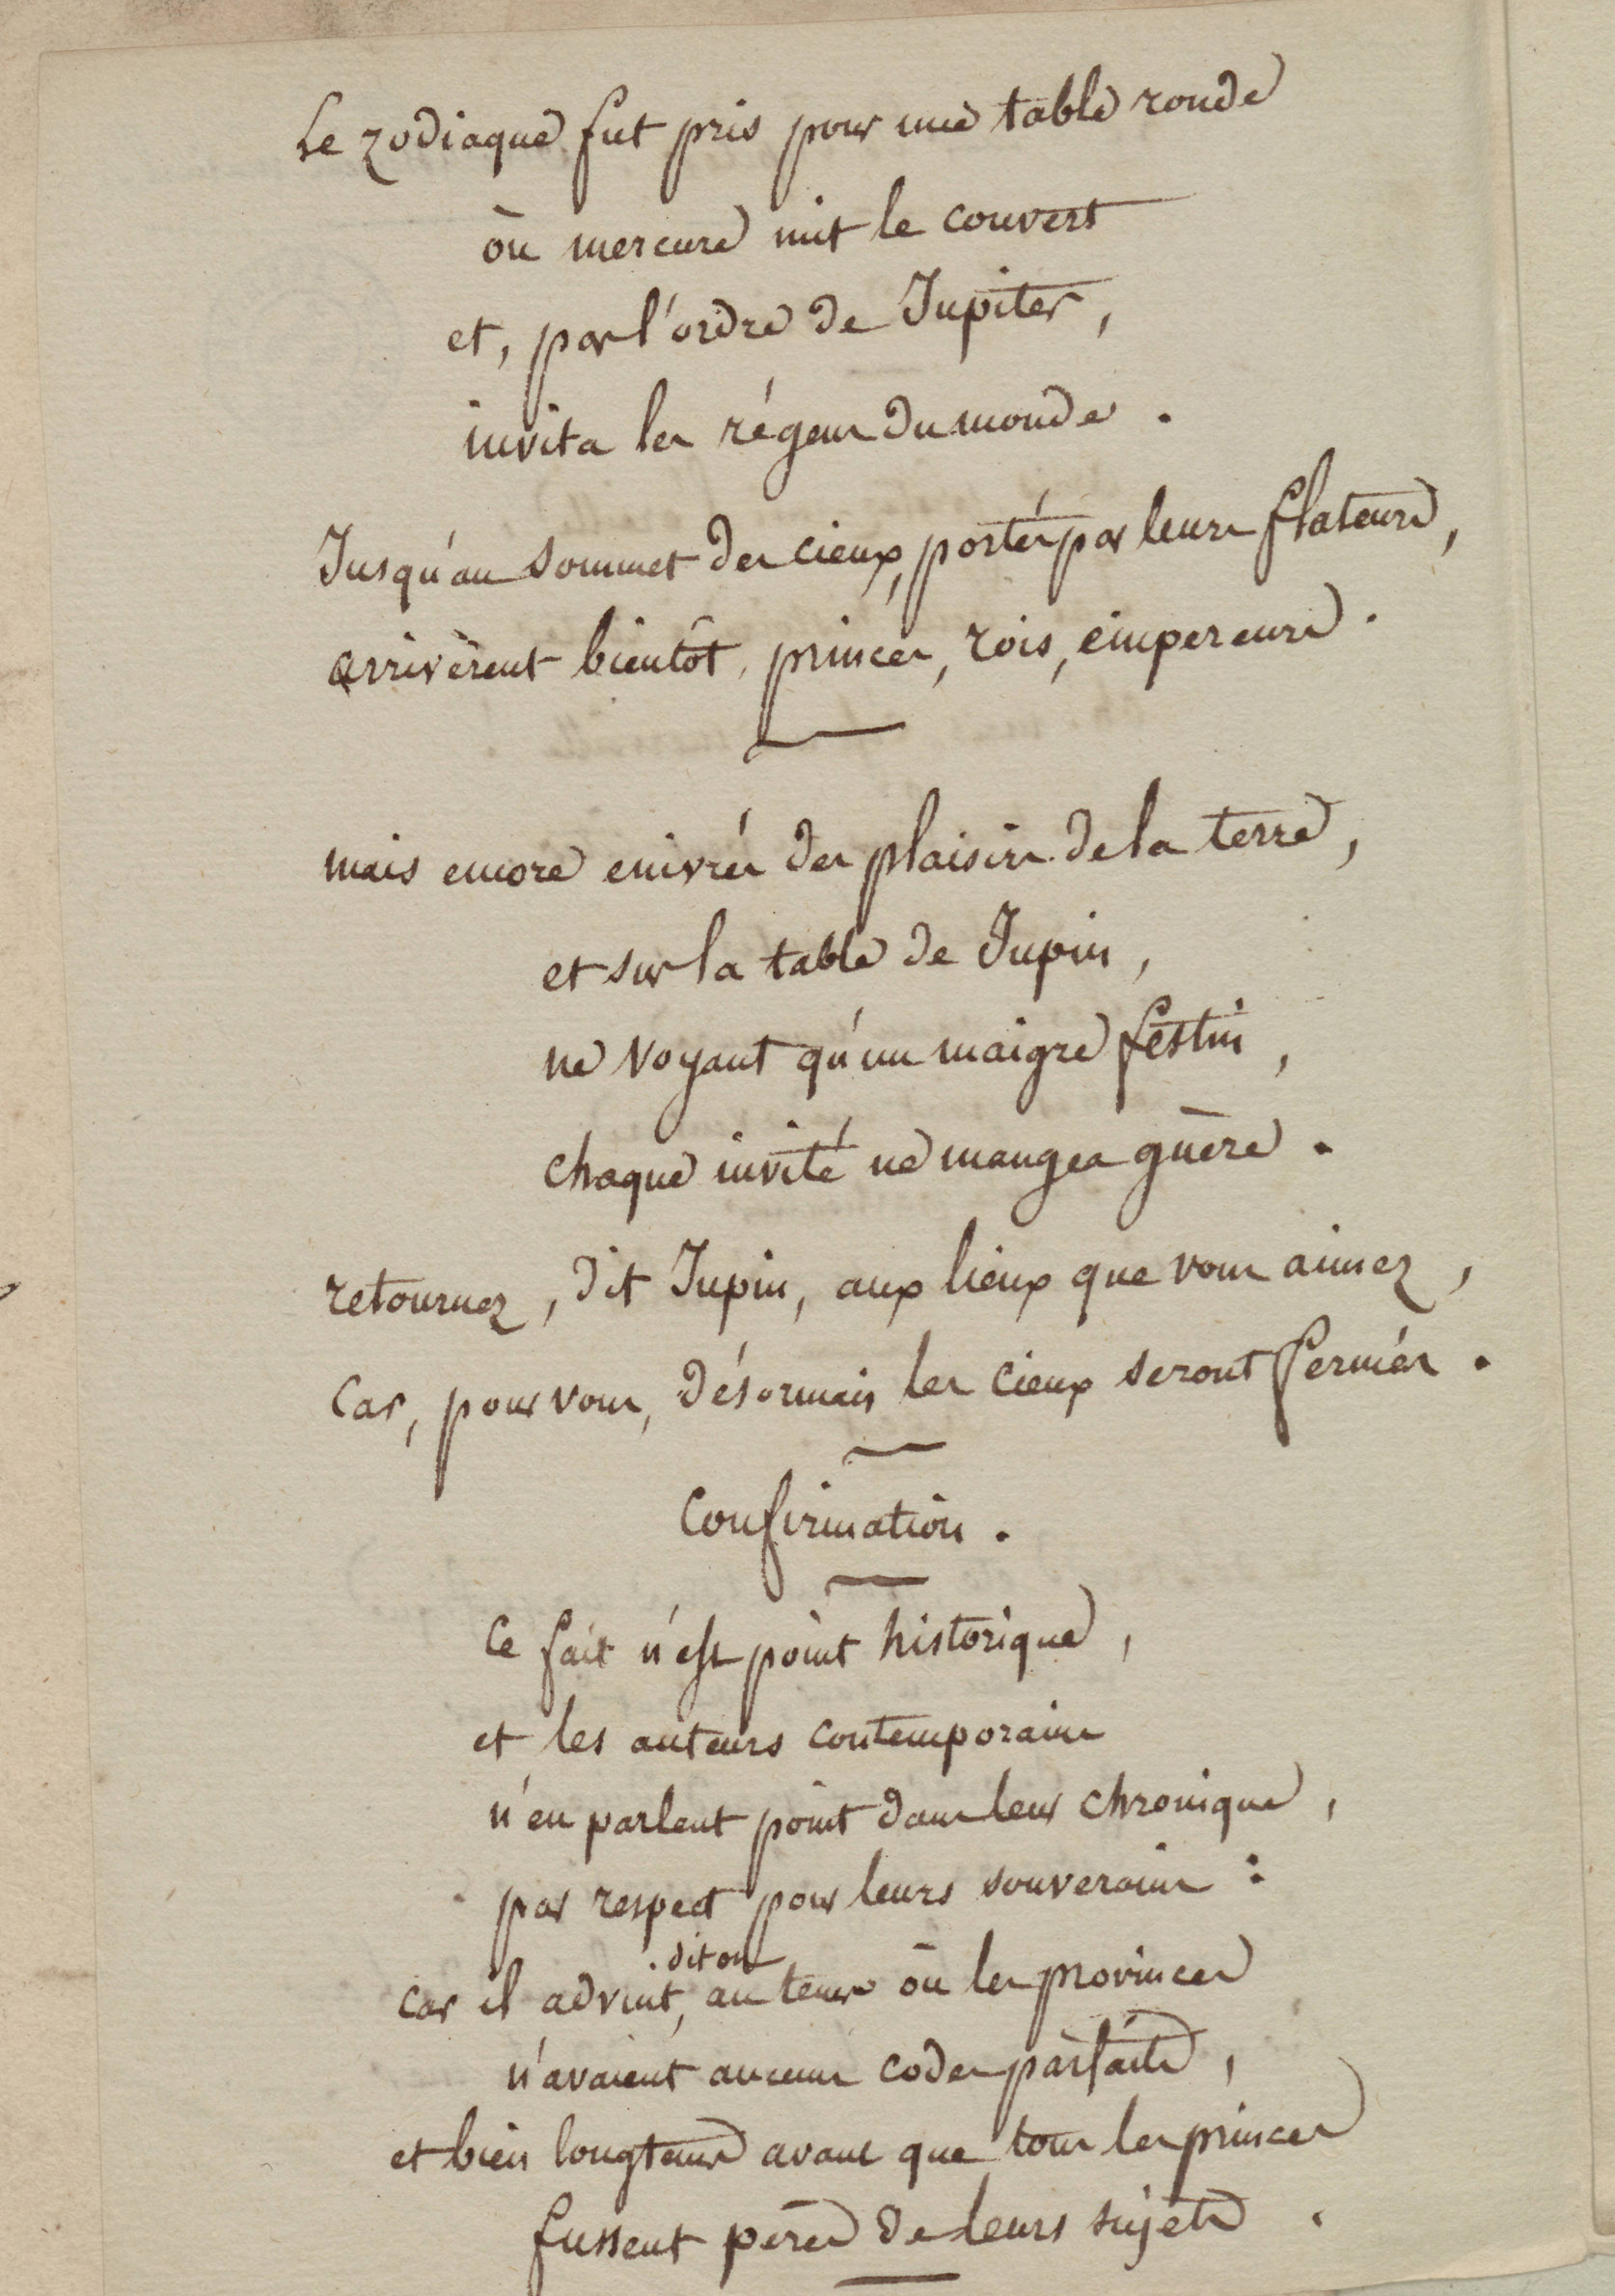 Le zodiaque fut pris pour une table ronde
où mercure mit le couvert
et, par l'ordre de Jupiter,
invita les régens du monde.
Jusqu'au sommet des cieux, portés par leurs flateurs,
arrivèrent bientôt, princes, rois, empereurs.
mais encore enivrés des plaisirs de la terre,
et sur la table de Jupin,
ne voyant qu'un maigre festin,
chaque invité ne mangea guère.
retournez, dit Jupin, aux lieux que vous aimez,
Car, pour vous, désormais les cieux seront fermés.
Confirmation.
Ce fait n'est point historique,
et les auteurs contemporains
n'en parlent point dans leur chronique,
par respect pour leurs souverains:
dit on
car il advint, au tems où les provinces
n'avaient aucuns codes parfaits,
et bien longtems avant que tous les princes
fussent pères de leurs sujets.